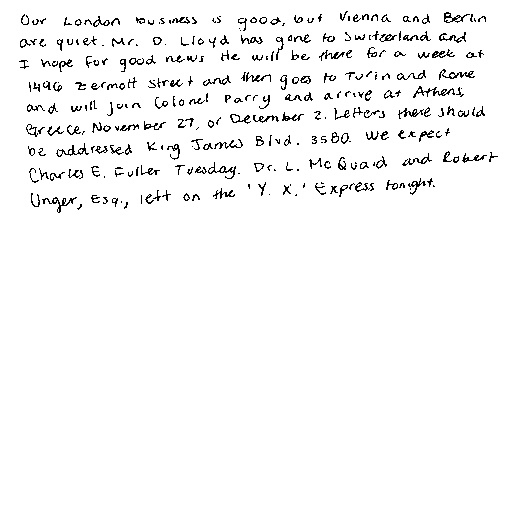 Our London business is good, but Vienna and Berlin
are quiet. Mr. D. Lloyd has gone to Switzerland and
I hope for good news He will be there for a week at
1496 Zermott Street and then goes to Turin and Rome
and will join Colonel Parry and arrive at Athens,
Greece, November 27, or December 2. Letters there should
be addressed King James Blvd. 3580. We expect
Charles E. Fuller Tuesday. Dr. L. McQuaid and Robert
Unger, Esq., left on the 'Y. X.' Express tonight.